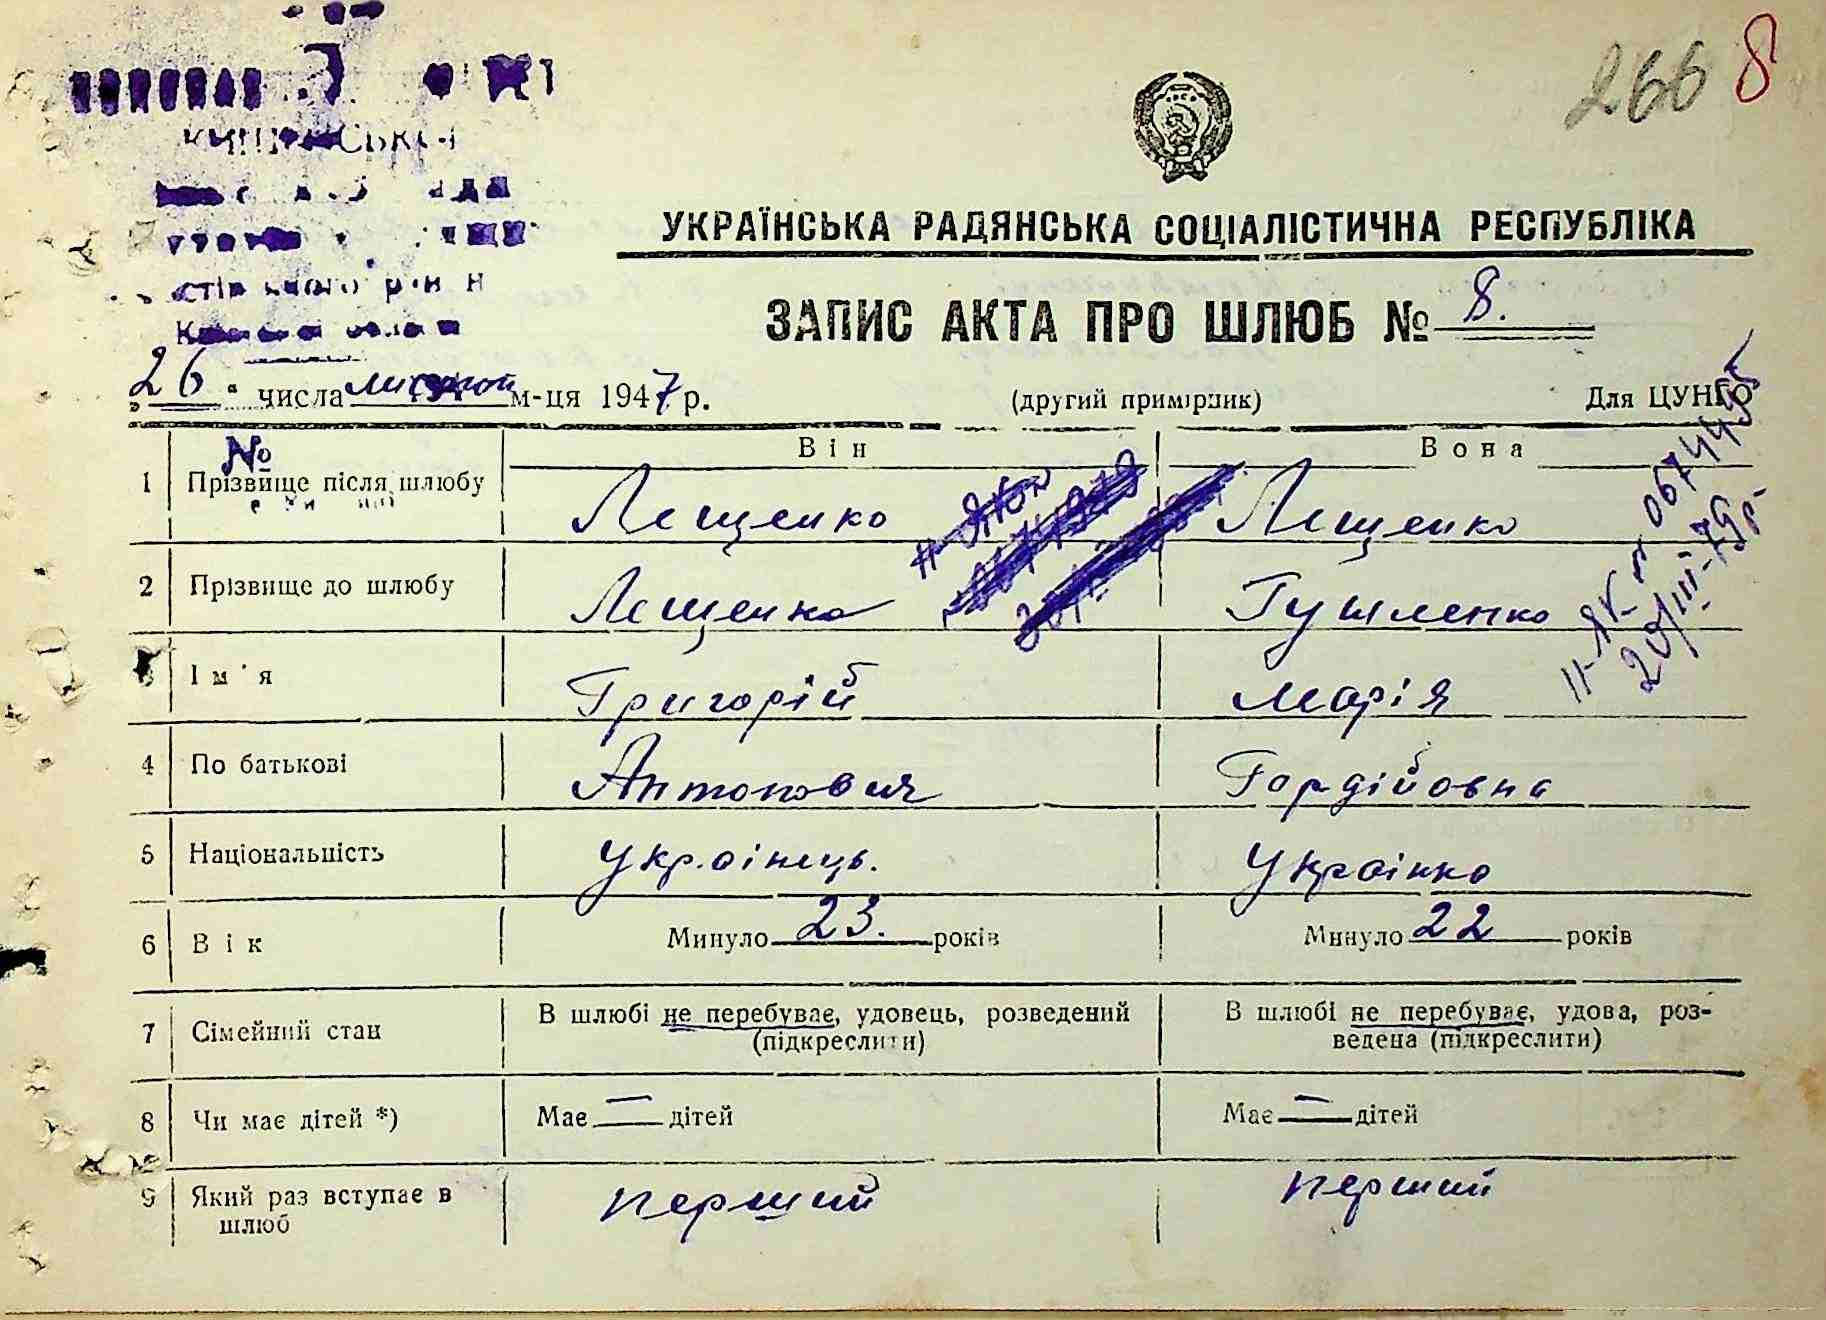 266 8
УКРАЇНСЬКА РАДЯНСЬКА СОЦІАЛІСТИЧНА РЕСПУБЛІКА
ЗАПИС АКТА ПРО ШЛЮБ № 8.
„26“ числа м-ця 1947 р. (другий примірник) Для ЦУНГО
№ Він Вона
1 Прізвище після шлюбу Лещенко Лещенко
2 Прізвище до шлюбу Лещенко Гушленко
3 Ім'я Григорій Марія
4 По батькові Антонович Гордійовна
5 Національність Українець. Українка
6 Вік Минуло 23. років Минуло 22 років
7 Сімейний стан В шлюбі не перебуває, удовець, розведений (підкреслити) В шлюбі не перебуває, удова, роз-
ведена (підкреслити)
8 Чи має дітей *) Має — дітей Має — дітей
9 Який раз вступає в перший перший
шлюб
II-ЯК № 0674495
20/III-79р.